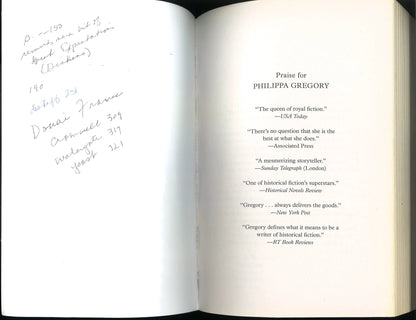 p. 150
reminds me bit of
Great Expectations
(Dickens)
140
258
Douai France
Cromwell 309
Watergate 317
yeast 321
Praise for
PHILIPPA GREGORY
“The queen of royal fiction.”
—USA Today
“There’s no question that she is the
best at what she does.”
—Associated Press
“A mesmerizing storyteller.”
—Sunday Telegraph (London)
“One of historical fiction’s superstars.”
—Historical Novels Review
“Gregory . . . always delivers the goods.”
—New York Post
“Gregory defines what it means to be a
writer of historical fiction.”
—RT Book Reviews